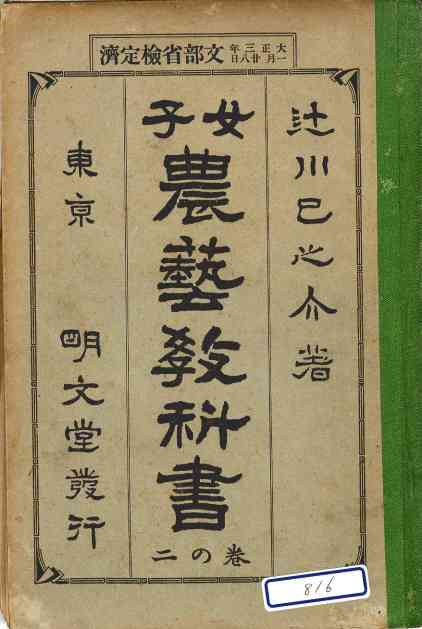 大正三年
一月廿八日
文部省檢定濟
辻川巳之介著
女子
農藝敎科書
卷の二
東京 明文堂發行
816